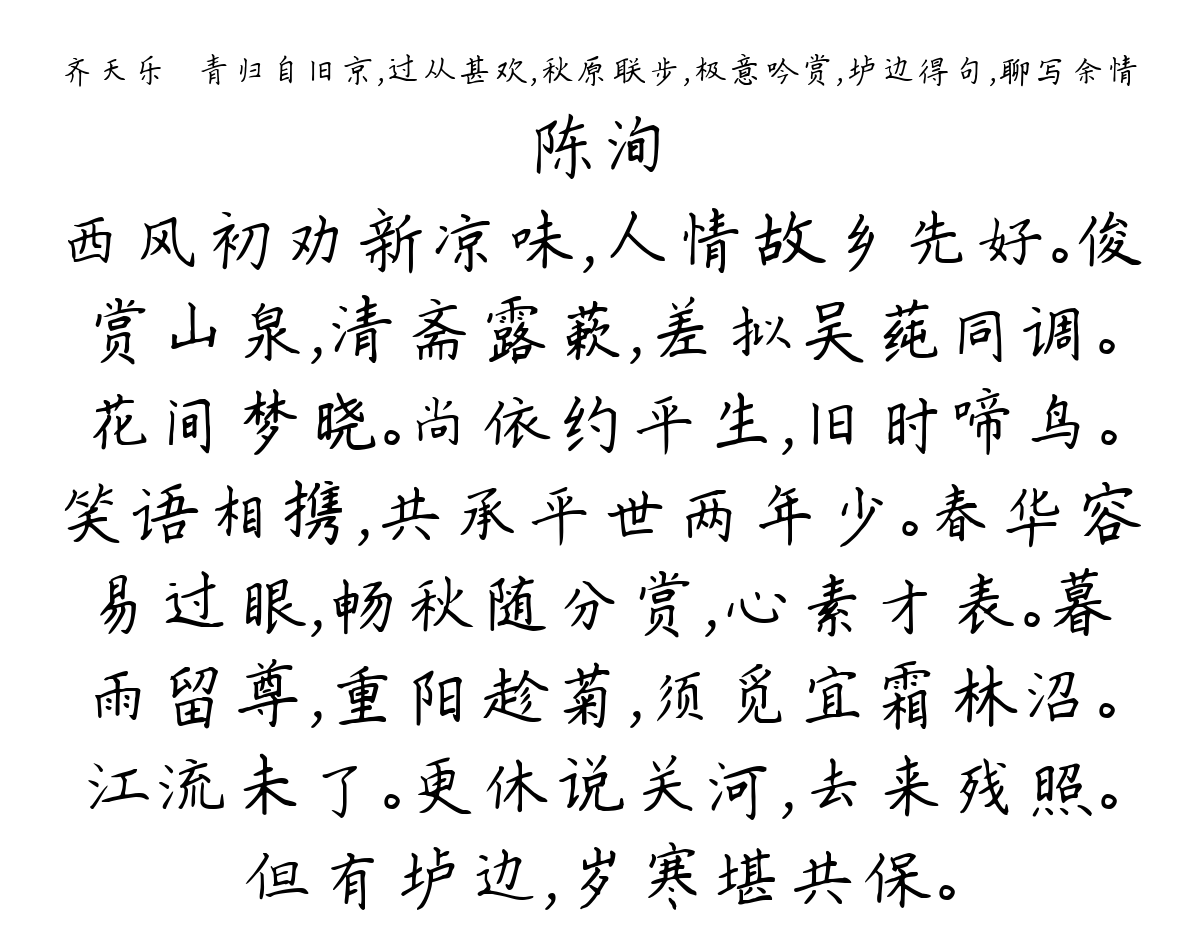 齐天乐　青归自旧京,过从甚欢,秋原联步,极意吟赏,垆边得句,聊写余情
陈洵
西风初劝新凉味,人情故乡先好。俊
赏山泉,清斋露蔌,差拟吴莼同调。
花间梦晓。尚依约平生,旧时啼鸟。
笑语相携,共承平世两年少。春华容
易过眼,畅秋随分赏,心素才表。暮
雨留尊,重阳趁菊,须觅宜霜林沼。
江流未了。更休说关河,去来残照。
但有垆边,岁寒堪共保。